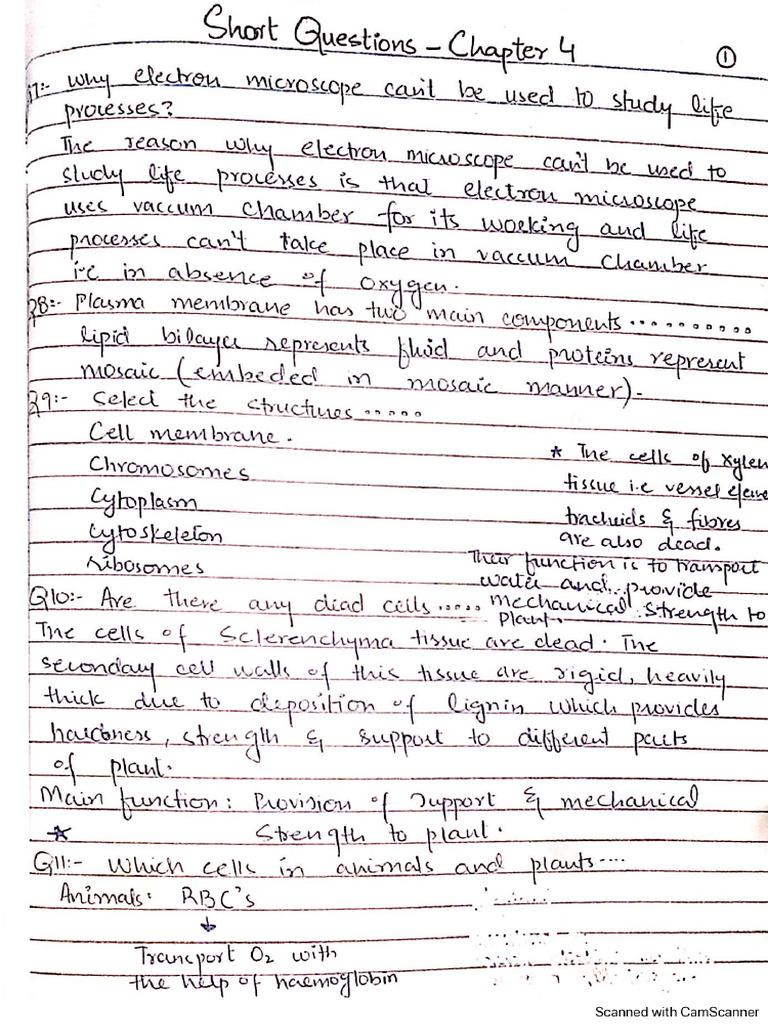 Short Questions - Chapter 4
1
17:- Why electron microscope can't be used to study life
processes?
The reason why electron microscope can't be used to
study life processes is that electron microscope
uses vaccum chamber for its working and life
processes can't take place in vaccum chamber
i-e in absence of oxygen.
Q8:- Plasma membrane has two main components ..........
lipid bilayer represents fluid and proteins represent
mosaic (embeded in mosaic manner).
Q9:- Select the structures .....
Cell membrane.
Chromosomes
Cytoplasm
Cytoskeleton
Ribosomes
* The cells of xylem
tissue i.e vessel eleme
tracheids & fibres
are also dead.
Their function is to transport
water and provide
mechanical strength to
plant.
Q10:- Are there any dead cells .....
The cells of Sclerenchyma tissue are dead. The
secondary cell walls of this tissue are rigid, heavily
thick due to deposition of lignin which provides
hardness, strength & support to different parts
of plant.
Main function: Provision of support & mechanical
* Strength to plant.
Q11:- Which cells in animals and plants ....
Animals: RBC's
↓
Transport O₂ with
the help of haemoglobin
Scanned with CamScanner